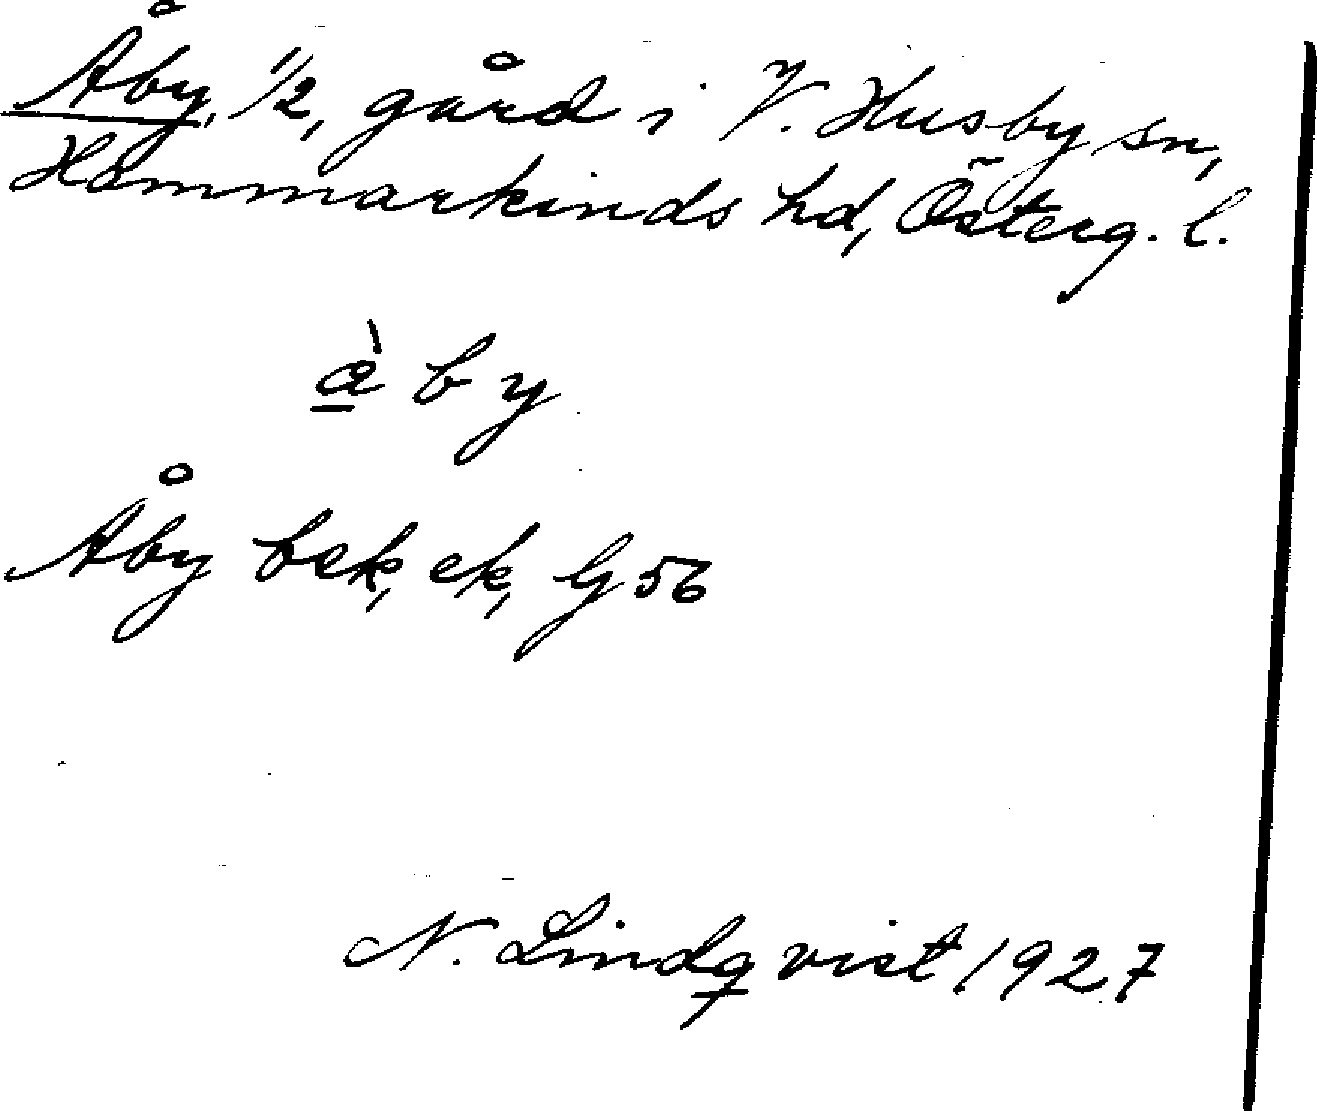 Åby, 1/2, gård i V. Husby sn,
Hammarkinds hd, Österg. l.
å̀ b y
Åby bek, ek, G 56
N. Lindqvist 1927